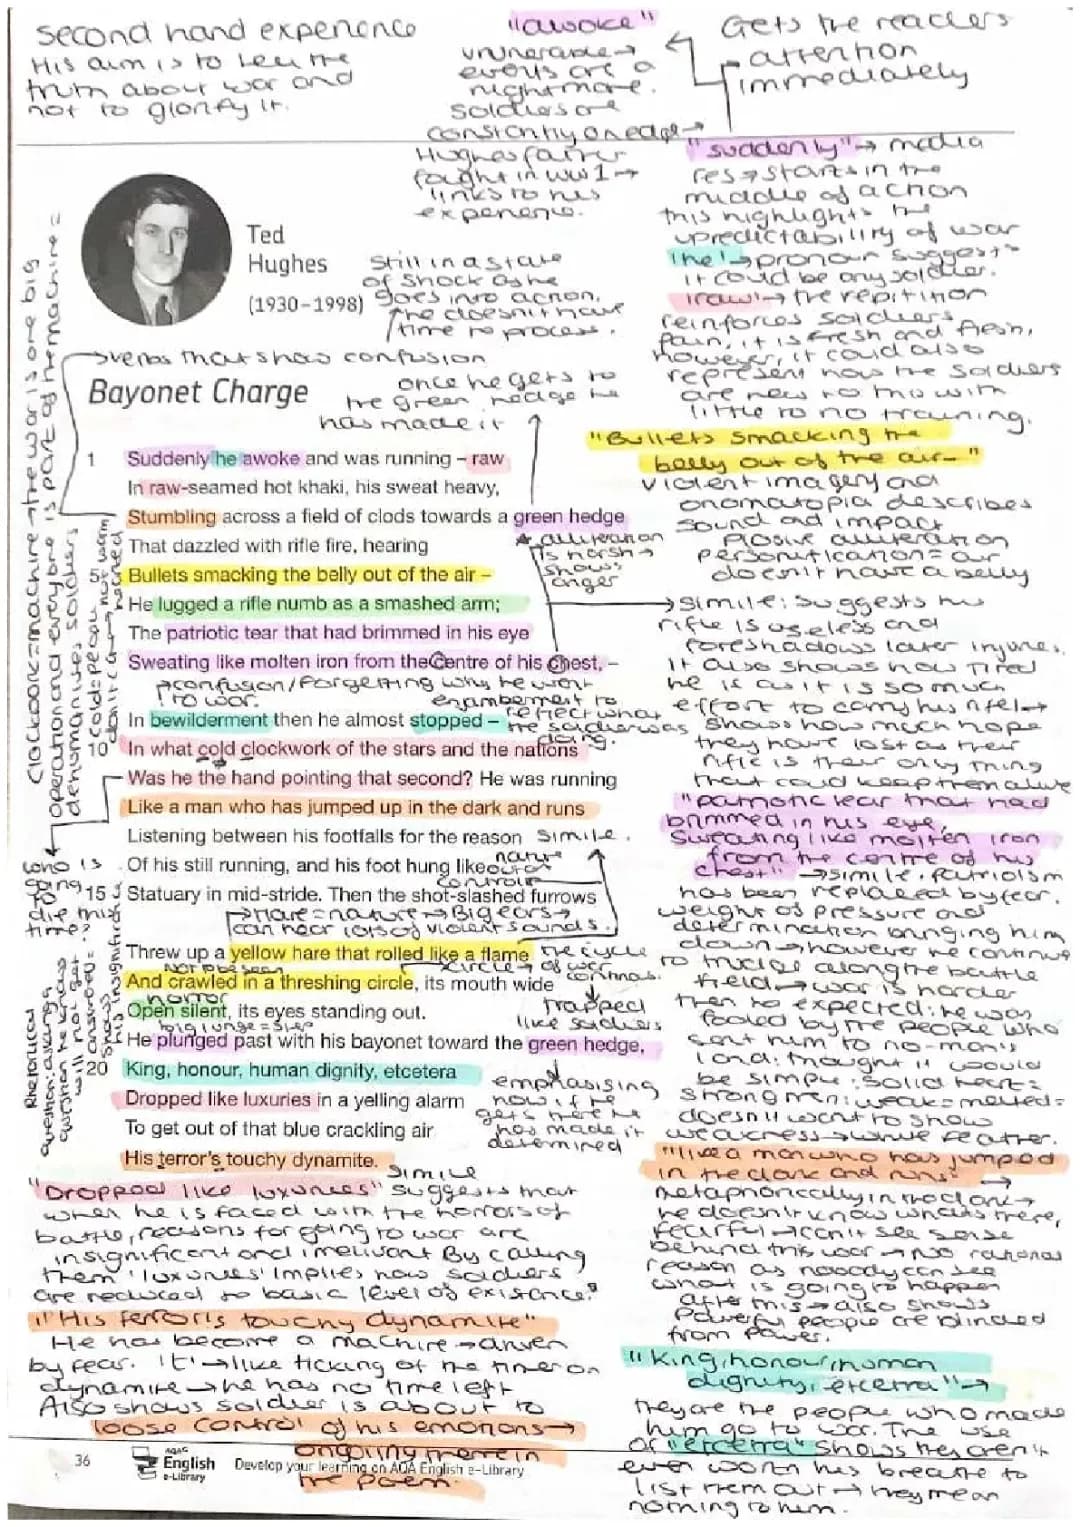 second hand experience
His aim is to tell the
truth about war and
not to glorify it.
"awoke"
vunerable →
events are a
nightmare.
soldiers are
constantly on edge →
Hughes father
fought in WW1 →
links to his
experience.
Gets the readers
attention
immediately
"suddenly" → media
res → starts in the
middle of action
this highlights the
upredictability of war
'he' → pronoun suggests
it could be any soldier.
'raw' → the repitition
reinforces soldiers
pain, it is fresh and flesh,
however, it could also
represent how the soldiers
are new to this with
little to no training.
Ted
Hughes
(1930–1998)
Still in a state
of shock as he
goes into action.
He doesn't have
time to process.
→ verbs that show confusion
Bayonet Charge
once he gets to
the green hedge he
has made it
1 Suddenly he awoke and was running – raw
In raw-seamed hot khaki, his sweat heavy,
Stumbling across a field of clods towards a green hedge
That dazzled with rifle fire, hearing
5 Bullets smacking the belly out of the air –
He lugged a rifle numb as a smashed arm;
The patriotic tear that had brimmed in his eye
Sweating like molten iron from the centre of his chest, –
alliteration
is harsh →
shows
anger
→ confusion/forgetting why he went
to war.
enjambement to
reflect what
the soldier was
doing.
In bewilderment then he almost stopped –
10 In what cold clockwork of the stars and the nations
Was he the hand pointing that second? He was running
Like a man who has jumped up in the dark and runs
Listening between his footfalls for the reason
simile.
Of his still running, and his foot hung like
15 Statuary in mid-stride. Then the shot-slashed furrows
→ Hare = nature → Big ears →
can hear lots of violent sounds.
Threw up a yellow hare that rolled like a flame
And crawled in a threshing circle, its mouth wide
Open silent, its eyes standing out.
He plunged past with his bayonet toward the green hedge,
20 King, honour, human dignity, etcetera
Dropped like luxuries in a yelling alarm
To get out of that blue crackling air
His terror's touchy dynamite.
circle →
the cycle
of war
continues.
trapped
like soldiers
emphasising
how if he
gets here he
has made it
determined
clockwork = machine → the war is one big
operation and everyone is part of the machine =
dehumanises soldiers
Rhetorical
question: asking a
question he knows
will not get
answered =
shows
his insignificance
"Bullets smacking the
belly out of the air –"
violent imagery and
onomatopia describes
sound and impact
Plosive alliteration
personification = air
doesn't have a belly
→ simile: suggests his
rifle is useless and
foreshadows later injuries.
It also shows how tired
he is as it is so much
effort to carry his rifle →
shows how much hope
they have lost as their
rifle is their only thing
that could keep them alive
"patriotic tear that had
brimmed in his eye,
Sweating like molten iron
from the centre of his
chest" → simile. patriotism
has been replaced by fear.
weight of pressure and
determination bringing him
down → however he continue
to trudge along the battle
field → war is harder
then he expected: he was
fooled by the people who
sent him to no-man's
land: thought it would
be simple: solid heart =
strong men: weak = melted =
doesn't want to show
weakness → white feather.
"like a man who has jumped
in the dark and runs" →
metaphorically in the dark →
he doesn't know whats there,
fearful → can't see sense
behind this war → no rational
reason as nobody can see
what is going to happen
after this → also shows
powerful people are blinded
from power.
"King, honour, human
dignity, etcetra" →
they are the people who made
him go to war. The use
of "etcetra" shows they aren't
even worth his breathe to
list them out → they mean
nothing to him.
"Dropped like luxuries"
simile
suggests that
when he is faced with the horrors of
battle, reasons for going to war are
insignificant and irrelivant By calling
them 'luxuries' implies how soldiers
are reduced to basic level of existance.
"His terror's touchy dynamite"
He has become a machine → driven
by fear. 'It' → like ticking of the timer on
dynamite → he has no time left
Also shows soldier is about to
loose control of his emotions →
ongoing theme in
the poem.
36
AQA
English
e-Library
Develop your learning on AQA English e-Library